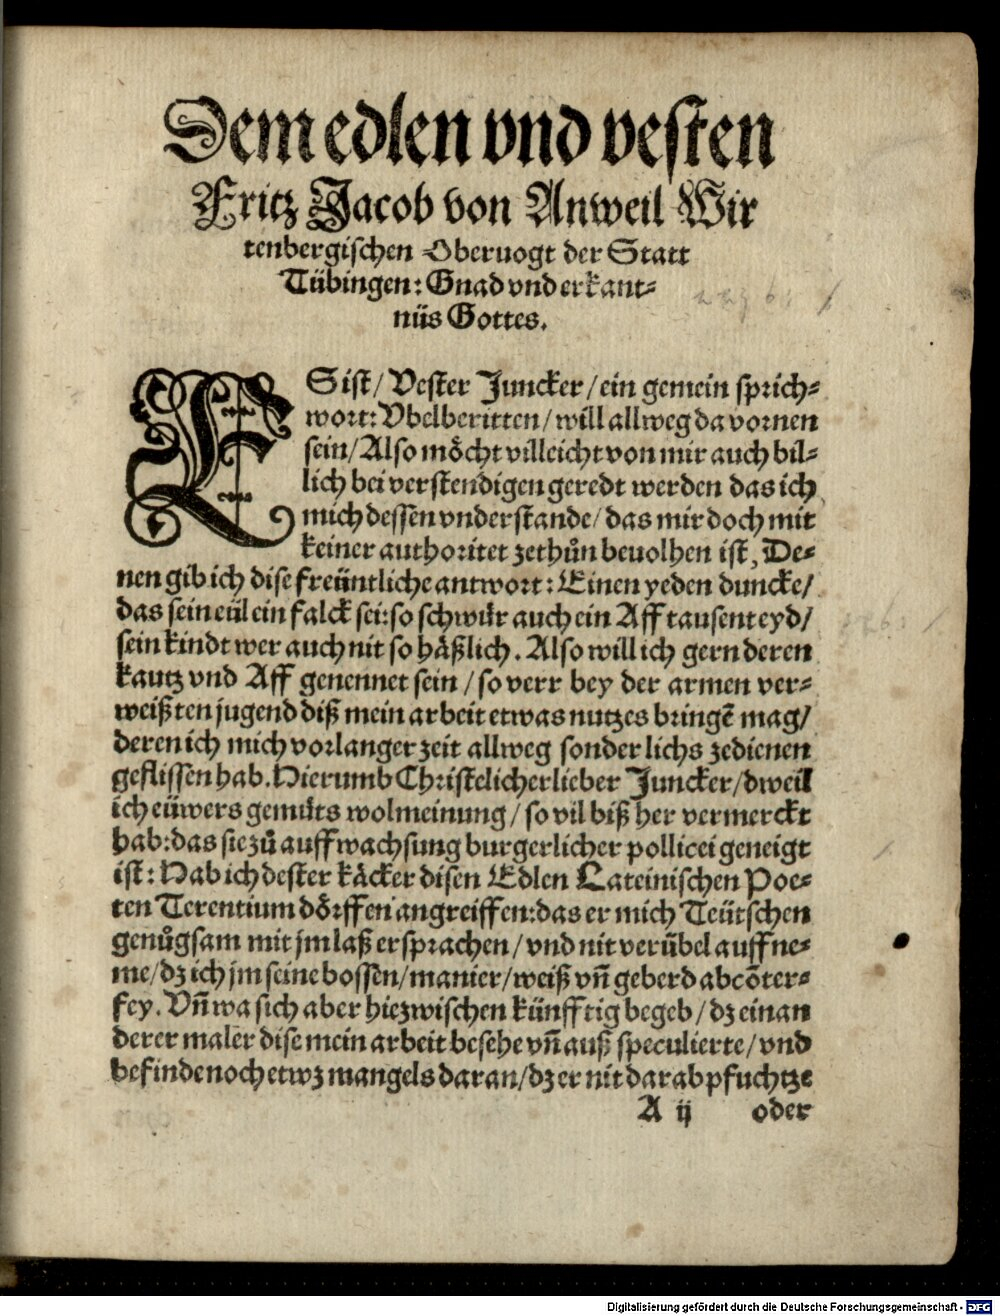 Dem edlen vnd vesten
Fritz Jacob von Anweil Wir
tenbergischen Oberuogt der Statt
Tübingen: Gnad vnd erkant⸗
nüs Gottes.
ES ist / Vester Juncker / ein gemein sprich⸗
wort: Vbelberitten / will allweg da vornen
sein / Also möcht villeicht von mir auch bil⸗
lich bei verstendigen geredt werden das ich
mich dessen vnderstande / das mir doch mit
keiner authoritet zethůn beuolhen ist, De⸗
nen gib ich dise freüntliche antwort: Einen yeden duncke /
das sein eül ein falck sei: so schwůr auch ein Aff tausent eyd /
sein kindt wer auch nit so häßlich. Also will ich gern deren
kautz vnd Aff genennet sein / so verr bey der armen ver⸗
weißten jugend diß mein arbeit etwas nutzes bringẽ mag /
deren ich mich vor langer zeit allweg sonderlichs zedienen
geflissen hab. Hierumb Christelicher lieber Juncker / dweil
ich eüwers gemůts wolmeinung / so vil biß her vermerckt
hab: das sie zů auffwachsung burgerlicher pollicei geneigt
ist: Hab ich dester käcker disen Edlen Lateinischen Poe⸗
ten Terentium dörffen angreiffen: das er mich Teütschen
genůgsam mit jm laß ersprachen / vnd nit verübel auffne⸗
me / dz ich jm seine bossen / manier / weiß vñ geberd abcõter⸗
fey. Vñ wa sich aber hiezwischen künfftig begeb / dz ein an
derer maler dise mein arbeit besehe vñ auß speculierte / vnd
befinde noch etwz mangels daran / dz er nit darab pfuchtze
A ij oder
Digitalisierung gefördert durch die Deutsche Forschungsgemeinschaft - DFG